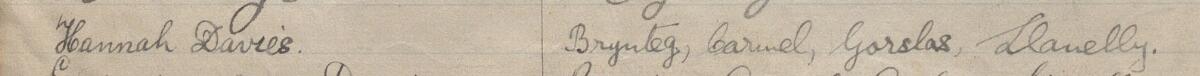 Hannah Davies. Brynteg, Carmel, Gorslas, Llanelly.